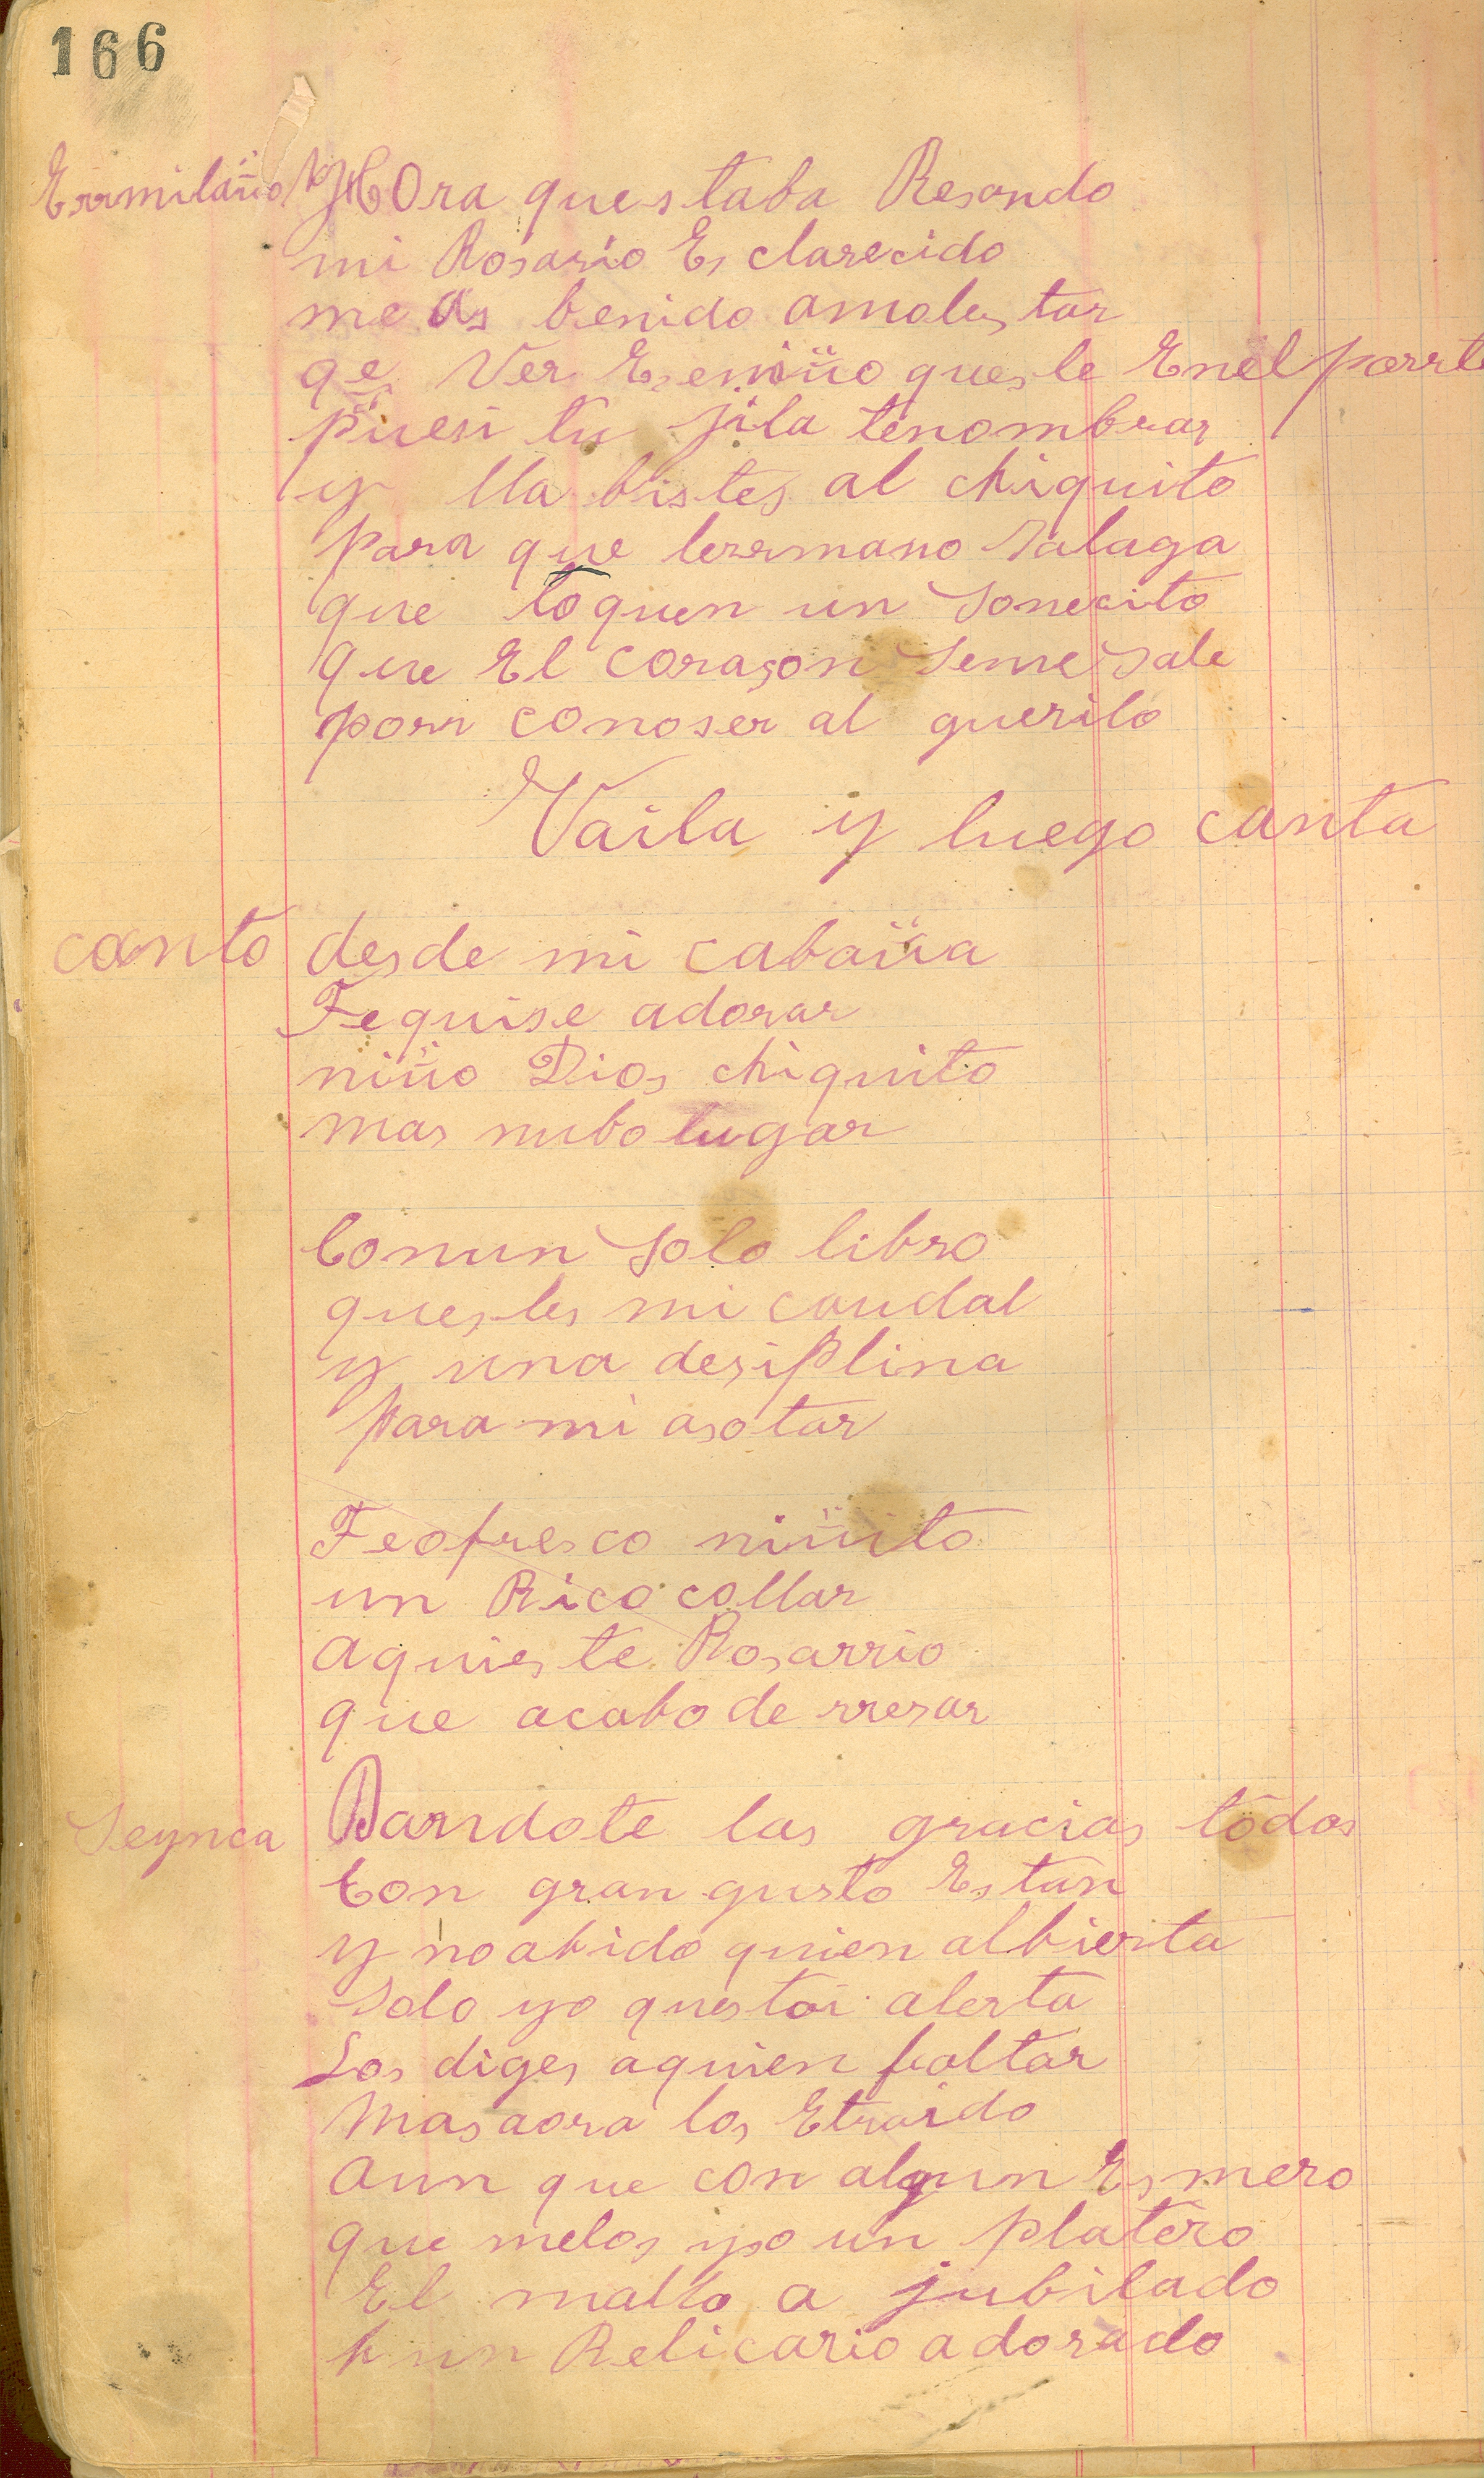 166
Errmilaño HOra questaba Resando
mi Rosario Es clarecido
me as benido amoles tar
qe Ver Ese niño ques te Enel porrta
puesi tu jila tenombrar
y lla bistes al chiquito
para que lerrmano salaga
que toquen un sonecito
que El coraçon seme sale
porr conoser al querito
Vaila y luego canta
canto desde mi cabaña
Tequise adorar
niño Dios chiquito
mas nubo lugar
Conun solo libro
ques,les mi caudal
y una desiplina
para mi asotar
Teofresco niñito
un Rico collar
aquies te Rosarrio
que acabo de rresar
Seynca Dandote las gracias todos
Con gran gusto Estan
y no abido quien albierta
solo yo questoi alerta
Los diges aquien faltar
Mas aora los Etraido
aun que con algun Es mero
que melos yso un platero
El malto a jubilado
hun Relicario adorado